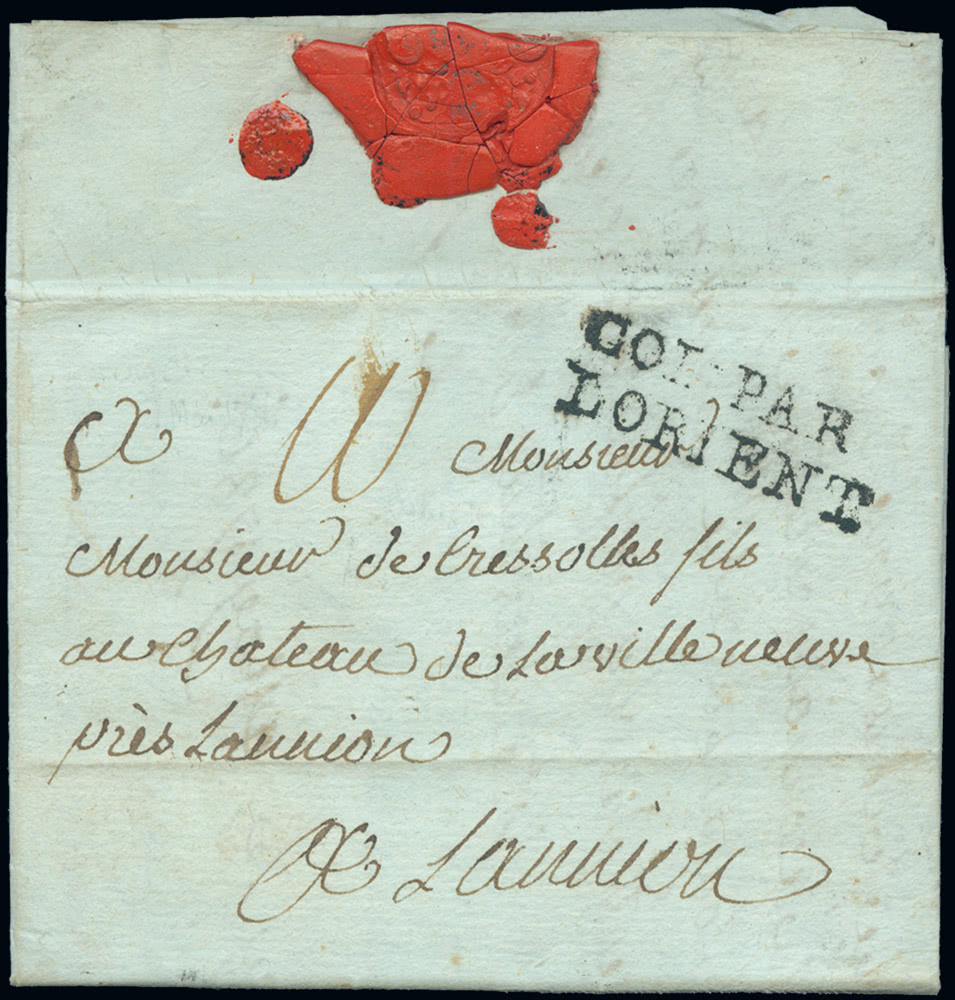 COL·PAR
LORIENT
a Monsieur
Monsieur de Cressolles fils
au Chateau de Lavilleneuve
près Lannion
a Lannion